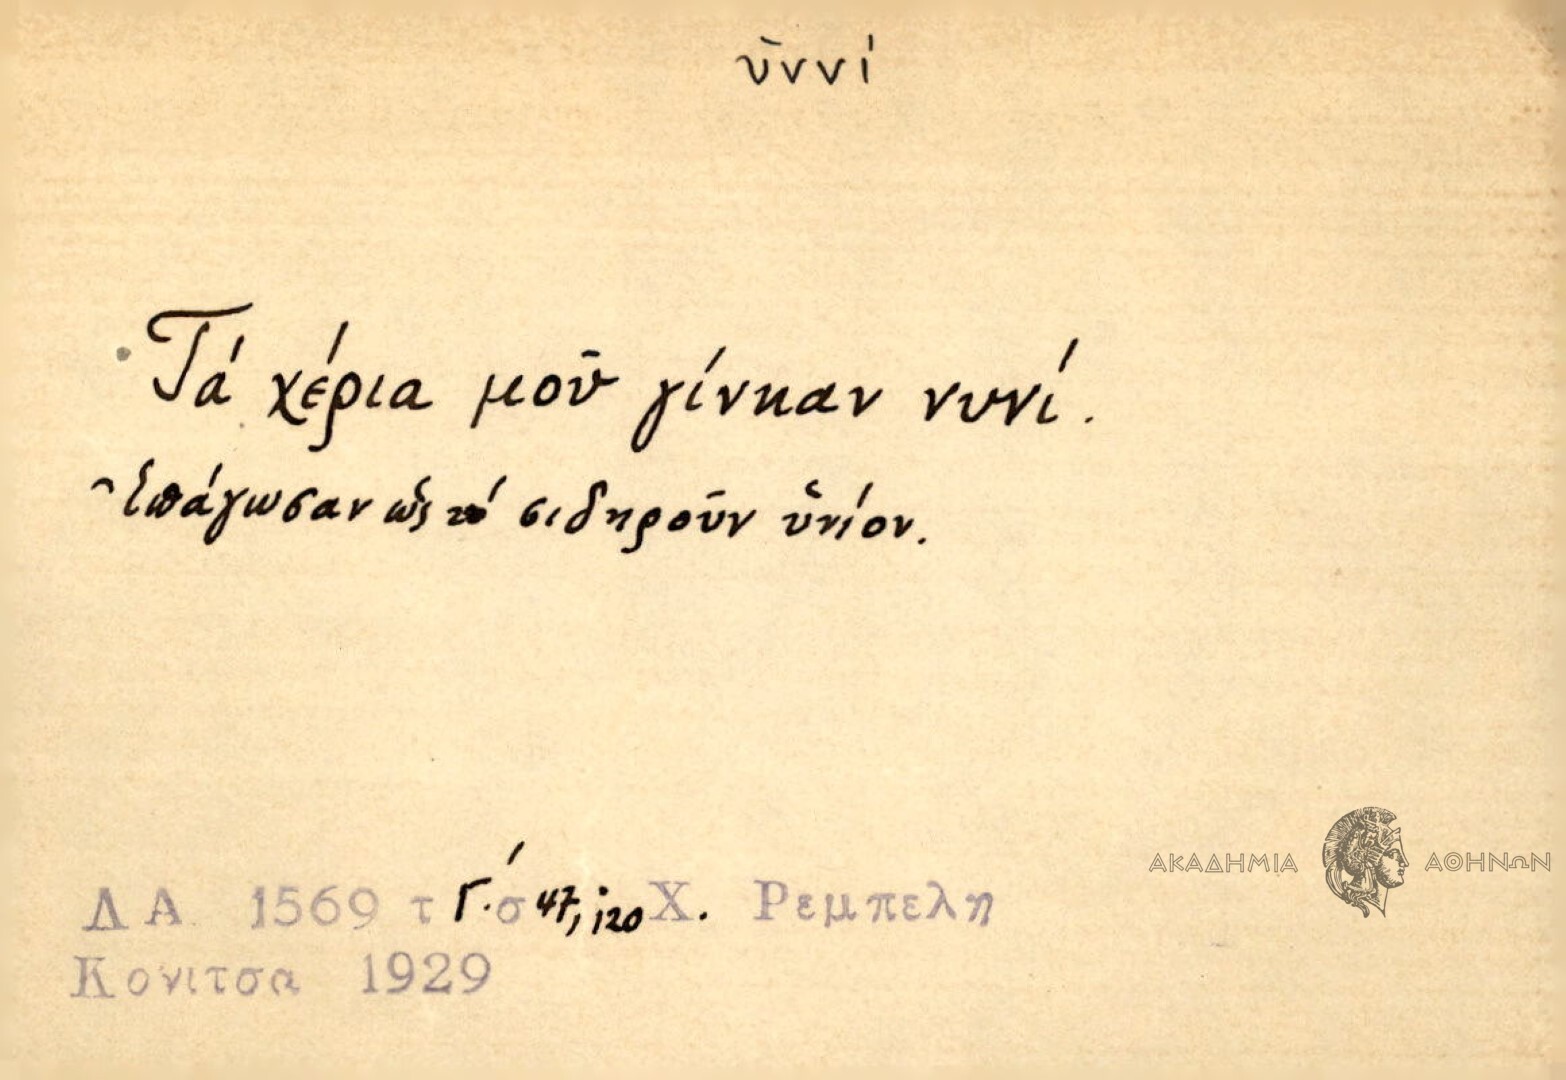 ὑννί
Τά χέρια μοῦ γίνηκαν νυνί.
Ἐπάγωσαν ὡς τό σιδηροῦν ὑνίον.
ΑΚΑΔΗΜΙΑ ΑΘΗΝΩΝ
Λ Α 1569 τ Γ.΄ σ 47, 120 Χ. Ρεμπελη
Κονιτσα 1929